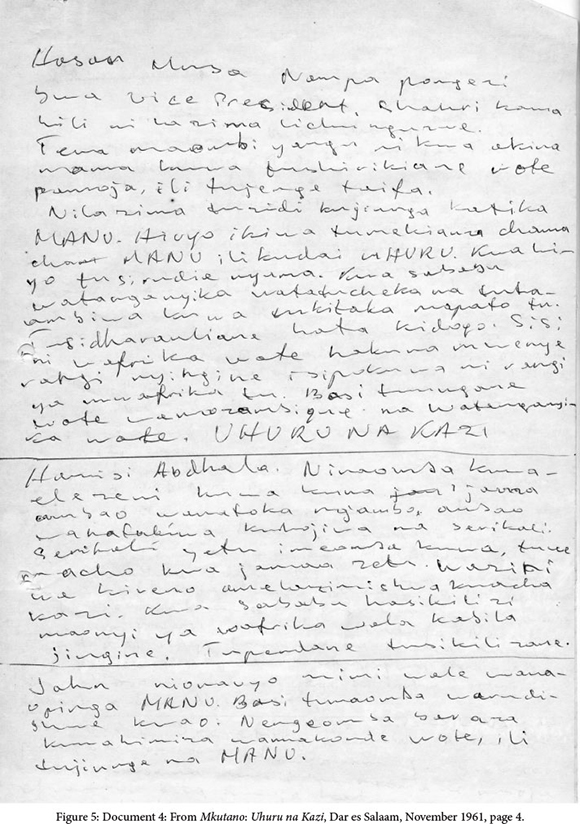 Hasan Musa Nampa pongezi
bwa vice President, Shauri kama
hili ni lazima lichunguzwe.
Tena maombi yangu ni kwa akina
mama kuwa tushirikiane wote
pamoja, ili tujenge taifa.
Nilazima tuzidi kujiunga katika
MANU. Hivyo ikiwa tumekianza chama
cham MANU ili kudai UHURU. Kwa hi-
yo tusirudie nyuma. Kwa sababu
watanganyika watatucheka na tuta-
ambiwa kuwa tukitaka mapato tu.
Tusidharauliane hata kidogo. Sisi
ni wafrika wote hakuna mwenye
rangi nyingine isipokuwa ni rangi
ya mwafrika tu. Basi tuungane
wote wamozambique na watanganyi-
ka wote. UHURU NA KAZI
Hamisi Abdhala. Ninaomba kuwa-
elezeni kuwa kuna jamaa
ambao wanatoka ngambo, ambao
wanatakiwa kuhojiwa na serikali.
Serikali yetu imeomba kuwa, tuwe
macho kwa jamaa zetu. Waziri
wa kireno amelazimishwa kuacha
kazi. Kwa sababu hasikilizi
maonyi ya wafrika wala kabila
jingine. Tupendane tusikilizane.
John nionavyo mimi wale wana-
opinga MANU. Basi tunaomba warudi-
shwe kwao. Nengeomba baraza
kuwahimiza wamakonde wote, ili
tujiunge na MANU.
Figure 5: Document 4: From Mkutano: Uhuru na Kazi, Dar es Salaam, November 1961, page 4.